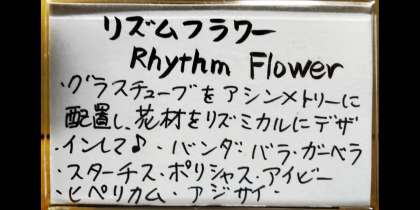 リズムフラワー
Rhythm Flower
・グラスチューブをアシンメトリーに
配置し、花材をリズミカルにデザ
インして♪・バンダ・バラ・ガーベラ
・スターチス・ポリシャス・アイビー
・ヒペリカム・アジサイ・